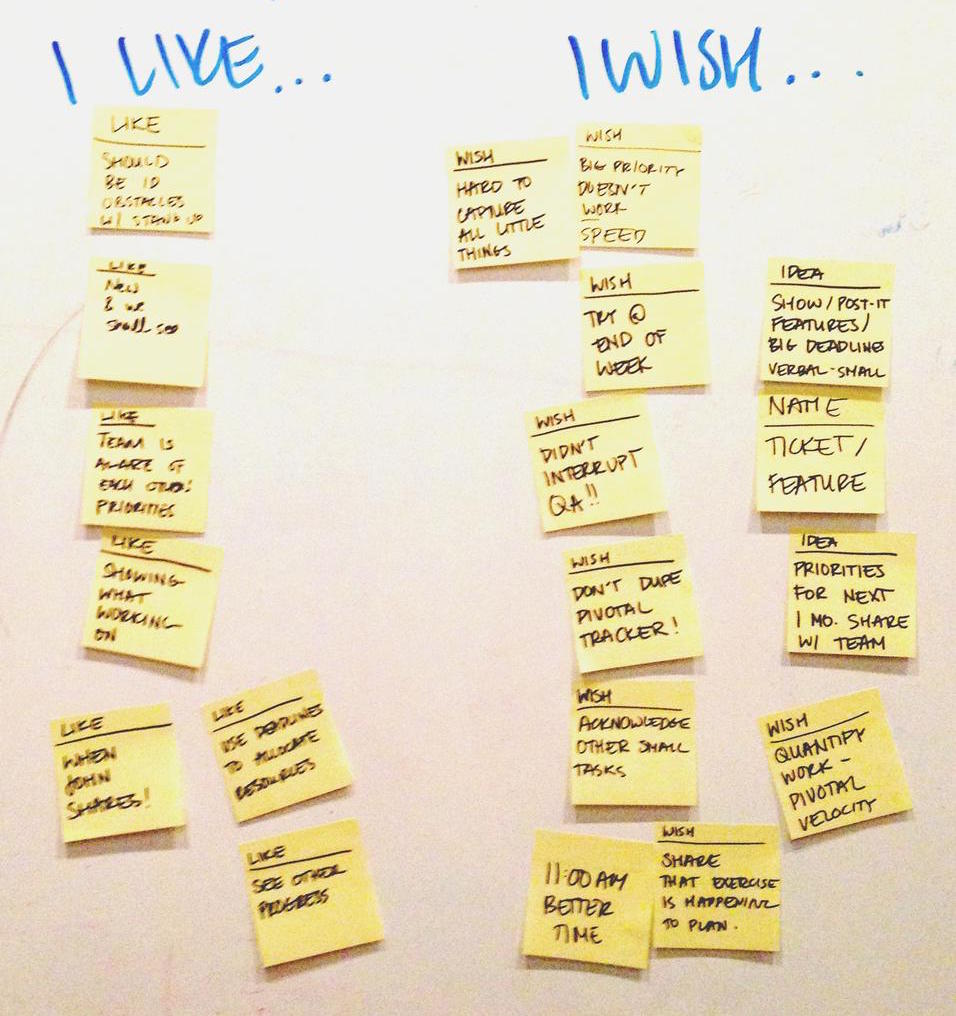 I LIKE...
LIKE
SHOULD
BE ID
OBSTACLES
W/ STAND UP
LIKE
NEW
& WE
LIKE
TEAM IS
AWARE OF
EACH OTHERS
PRIORITIES
LIKE
SHOWING
WHAT
WORKING
ON
LIKE
WHEN
JOHN
SHARES!
LIKE
USE DEADLINES
TO ALLOCATE
RESOURCES
LIKE
SEE OTHER
PROGRESS
I WISH...
WISH
HARD TO
CAPTURE
ALL LITTLE
THINGS
WISH
BIG PRIORITY
DOESN'T
WORK
SPEED
WISH
TRY @
END OF
WEEK
WISH
DIDN'T
INTERRUPT
QA!!
WISH
DON'T DUPE
PIVOTAL
TRACKER!
WISH
ACKNOWLEDGE
OTHER SMALL
TASKS
11:00 AM
BETTER
TIME
WISH
SHARE
THAT EXERCISE
IS HAPPENING
TO PLAN.
IDEA
SHOW/POST-IT
FEATURES/
BIG DEADLINE
VERBAL-SMALL
NAME
TICKET/
FEATURE
IDEA
PRIORITIES
FOR NEXT
1 MO. SHARE
W/ TEAM
WISH
QUANTIFY
WORK -
PIVOTAL
VELOCITY